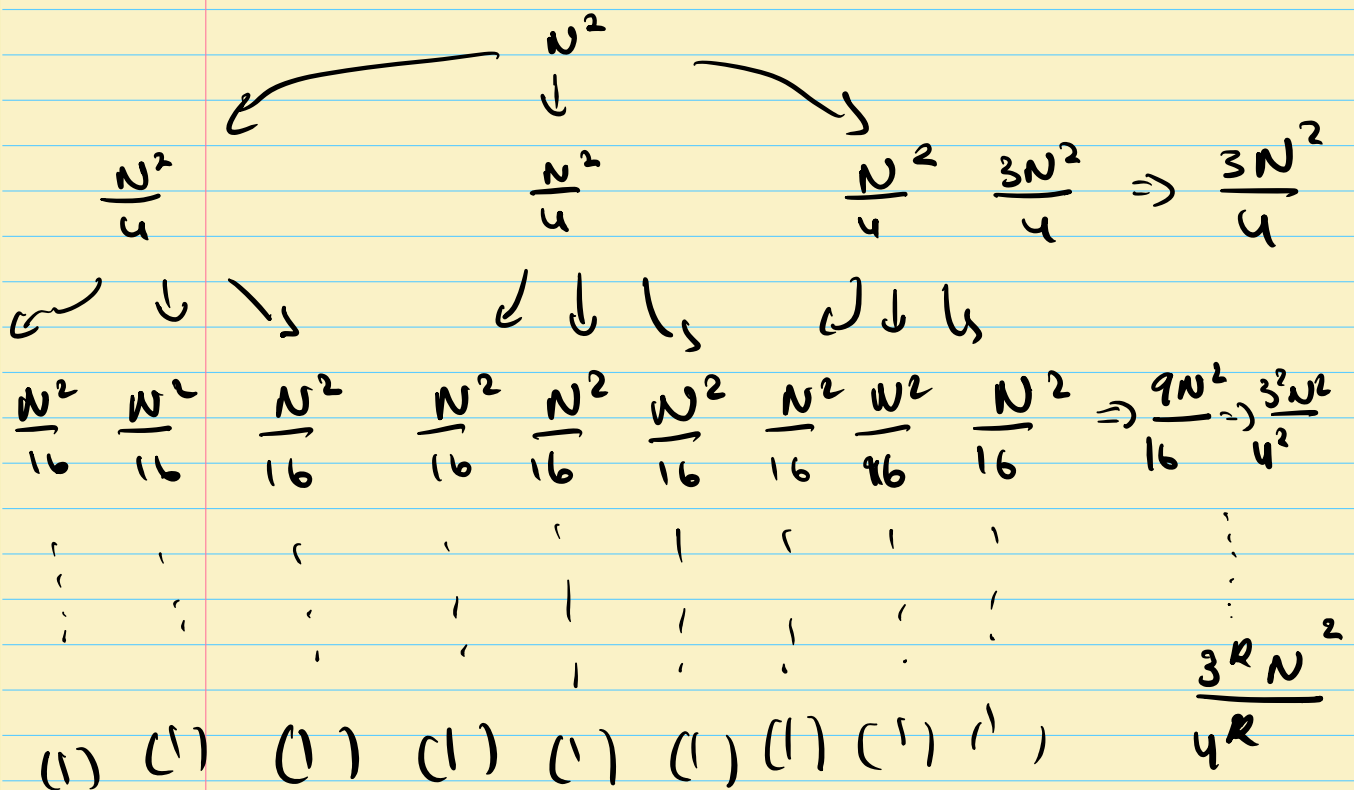 N²
N²/4 N²/4 N²/4 3N²/4 => 3N²/4
N²/16 N²/16 N²/16 N²/16 N²/16 N²/16 N²/16 N²/16 N²/16 => 9N²/16 => 3²N²/4²
3^k N²/4^k
(1) (1) (1) (1) (1) (1) (1) (1) (1)